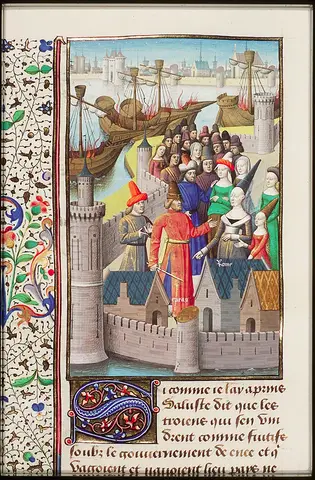 Si comme ie lay aprins
Saluste dit que les
troiens qui sen vin
drent comme fuitifz
soubz le gouuernement de enee et q
vagoient et nauoient lieu pays ne